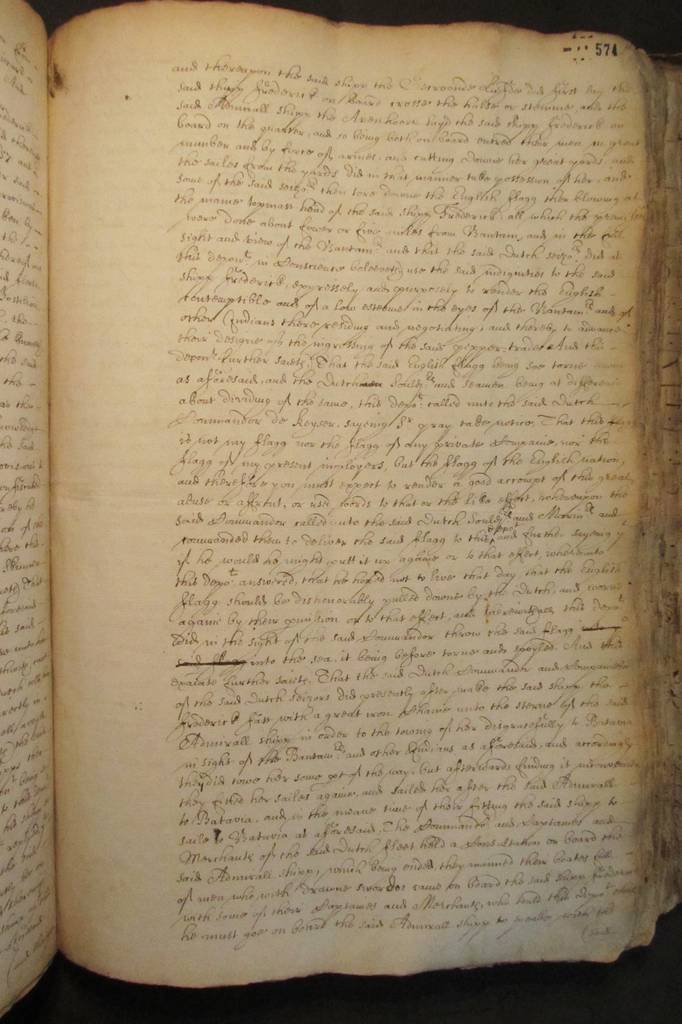 574
and thereupon the said shipp the did first lay the
said shipp Frederick on board crosse the halse or stemme, and the
said Admirall shipp the Arenhoorne layd the said shipp Frederick on
board on the quarter, and so being both on board entred their men in great
number and by force of armes, and cutting downe her great yards, and
the sailes from the yards did in that manner take possession of her, and
some of the said seizors then tore downe the English flagg then blowing at
the maine topmast head of the said shipp Frederick, all which the premisses
were done about fower or five miles from Bantam, and in the full
sight and view of the Bantamrs and that the said Dutch seizors did as
this deponent in Conscience beleeveth use the said indignities to the said
shipp Frederick, expressely and purposely to render the English
contemptible and of a low esteeme in the eyes of the Bantamrs and of
other Indians there residing and negotiating, and thereby to advance
their designe in the ingrossing of the said pepper trade. And this
deponent further saieth That the said English flagg being soe torne downe
as aforesaid, and the Dutch souldrs and seamen being at difference
about dividing of the same, this depot called unto the said Dutch
Commander de Keyser, sayeing Sr pray take notice, That this flagg
is not my flagg nor the flagg of any private Companie, nor the
flagg of my present imployers, but the flagg of the English nation,
and therefore you must expect to render a good accompt of this great
abuse or affront, or used words to that or the like effect, whereupon the
said Commander called unto the said Dutch souldrs and Marinrs and
commanded them to deliver the said flagg to this depot and further sayeing
if he would he might putt it up againe or to that effect, whereunto
this depot answered, that he hoped not to live that day, that the English
flagg should be dishonorably pulled downe by the Dutch, and worne
againe by their permission or to that effect, and thereupon this depot
did in the sight of the said Commander throw the said flagg
into the sea, it being before torne and spoyled. And this
examinate further saieth That the said Dutch Commander and Companie
of the said Dutch seizors did presently after make the said shipp the
Frederick fast with a great iron Chaine unto the sterne of the said
Admirall shipp in order to the towing of her disgracefully to Batavia
in sight of the Bantamrs and other Indians as aforesaid, and accordingly
they did towe her some pt of the way, but afterwards finding it inconvenient
they fitted her sailes againe, and sailed her after the said Admirall
to Batavia, and in the meane time of their fitting the said shipp to
saile to Batavia as aforesaid, The Commandr and Captaines and
Merchants of the said Dutch fleet held a Consultation on board the
said Admirall shipp, which being ended, they manned their boates full
of men who with drawne swordes came on board the said shipp Frederick
with some of their Captaines and Merchants, who tould this depot that
he must goe on board the said Admirall shipp to speake with the
said